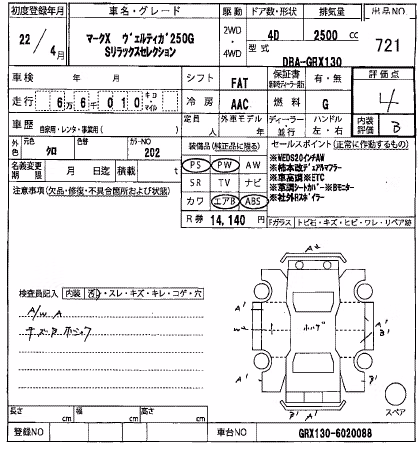 初度登録年月 車名・グレード 駆動 ドア数・形状 排気量 出品NO
22/4月 マークX ヴェルティガ250G Sリラックスセレクション 2WD・4WD 4D 2500 cc 721
型式 DBA-GRX130
車検 年 月 シフト FAT 保証書 有・無 評価点 4
走行 6万6千010 キロ・マイル 冷房 AAC 燃料 G
車歴 自家用・レンタ・事業用( ) 定員 人 外車モデル 年 ディーラー・並行 ハンドル 左・右 内装評価 B
色 元色 クロ 色替 カラーNO 202 装備品(純正品に限る) セールスポイント(正常に作動するもの)
名義変更期限 月 日迄 積載 t PS PW AW
注意事項(欠品・修復・不具合箇所および状態) SR TV ナビ
カワ エアB ABS
R券 14,140 円
※WEDS20インチAW
※柿本改デュアルマフラー
※車高調※ETC
※革調シートカバー※Bモニター
※社外Rスポイラー
Fガラス トビ石・キズ・ヒビ・ワレ・リペア跡
検査員記入 内装 ・スレ・キズ・キレ・コゲ・穴
A/W A
A2
A'
A'
B'
A'
A'
B'
A'
スペア
長さ cm 幅 cm 高さ cm
登録NO 車台NO GRX130-6020088